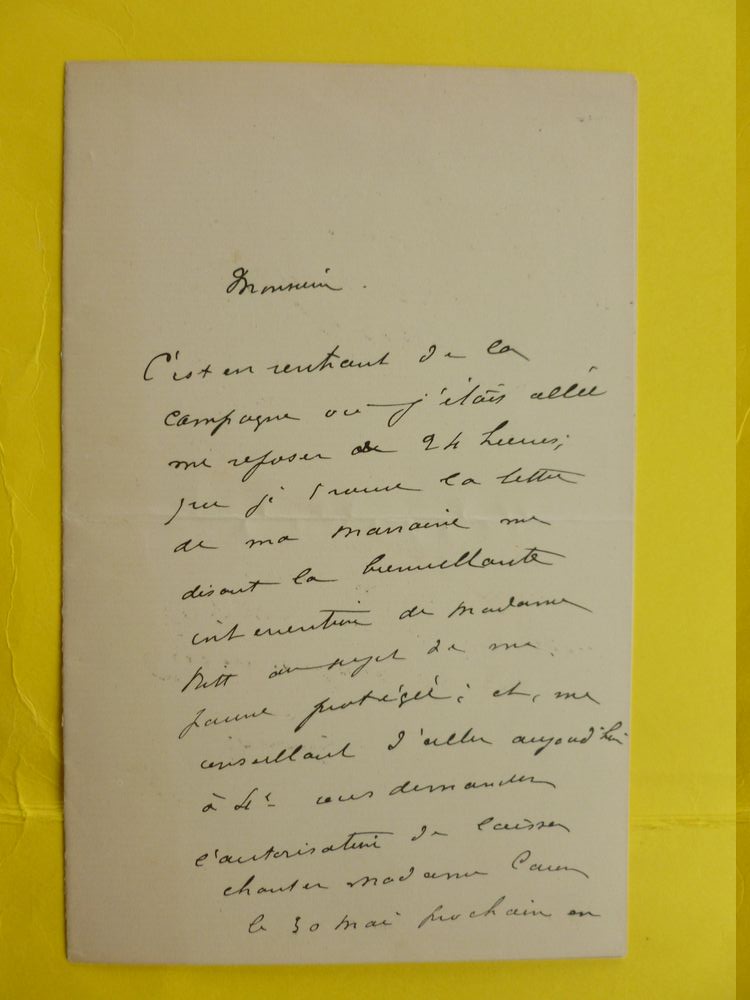 Monsieur.
C'est en rentrant de la
campagne ou j'étais allée
me reposer de 24 heures;
que je trouve la lettre
de ma marraine me
disant la bienveillante
intervention de Madame
Ritt au sujet de ma
jeune protégée; et, me
conseillant d'aller aujourd'hui
à 4h vous demander
l'autorisation de laisser
chanter Madame Caron
le 30 Mai prochain en